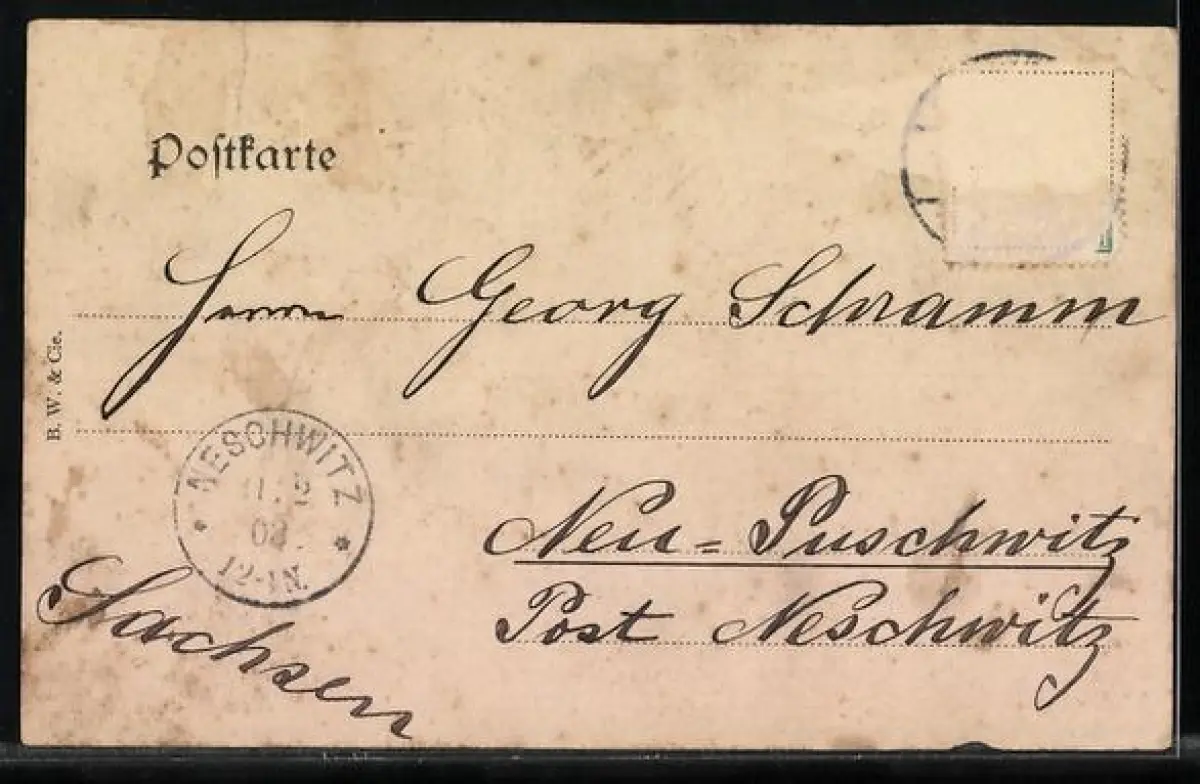 Postkarte
Herrn Georg Schramm
B. W. & Cie.
NESCHWITZ
12-1N.
Neu-Puschwitz
Post Neschwitz
Sachsen